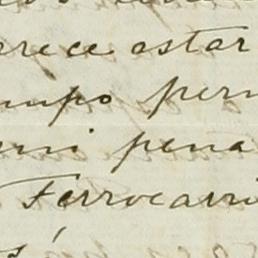 erece estar
mpo per
mi pena
Ferrocarri